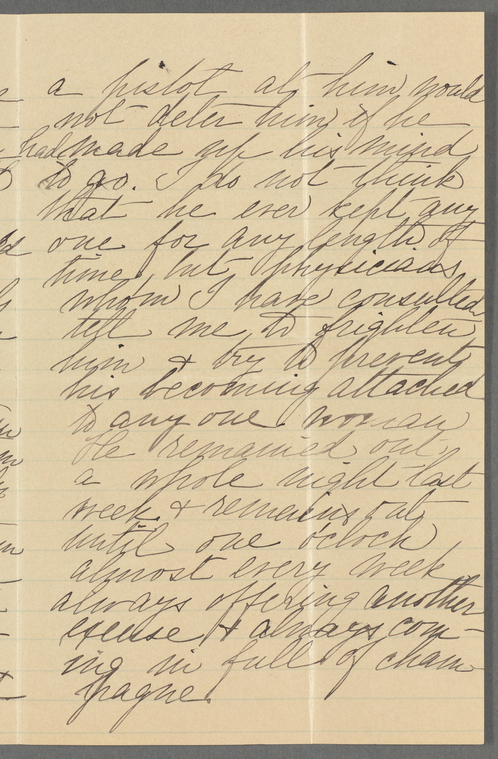 a pistol at him would
not deter him if he
had made up his mind
to go. I do not think
that he ever kept any
one for any length of
time, but physicians
whom I have consulted
tell me to frighten
him & try to prevent
his becoming attached
to any one woman
He remained out
a whole night last
week & remains out
until one oclock
almost every week
always offering another
excuse & always com-
ing in full of cham-
pagne.